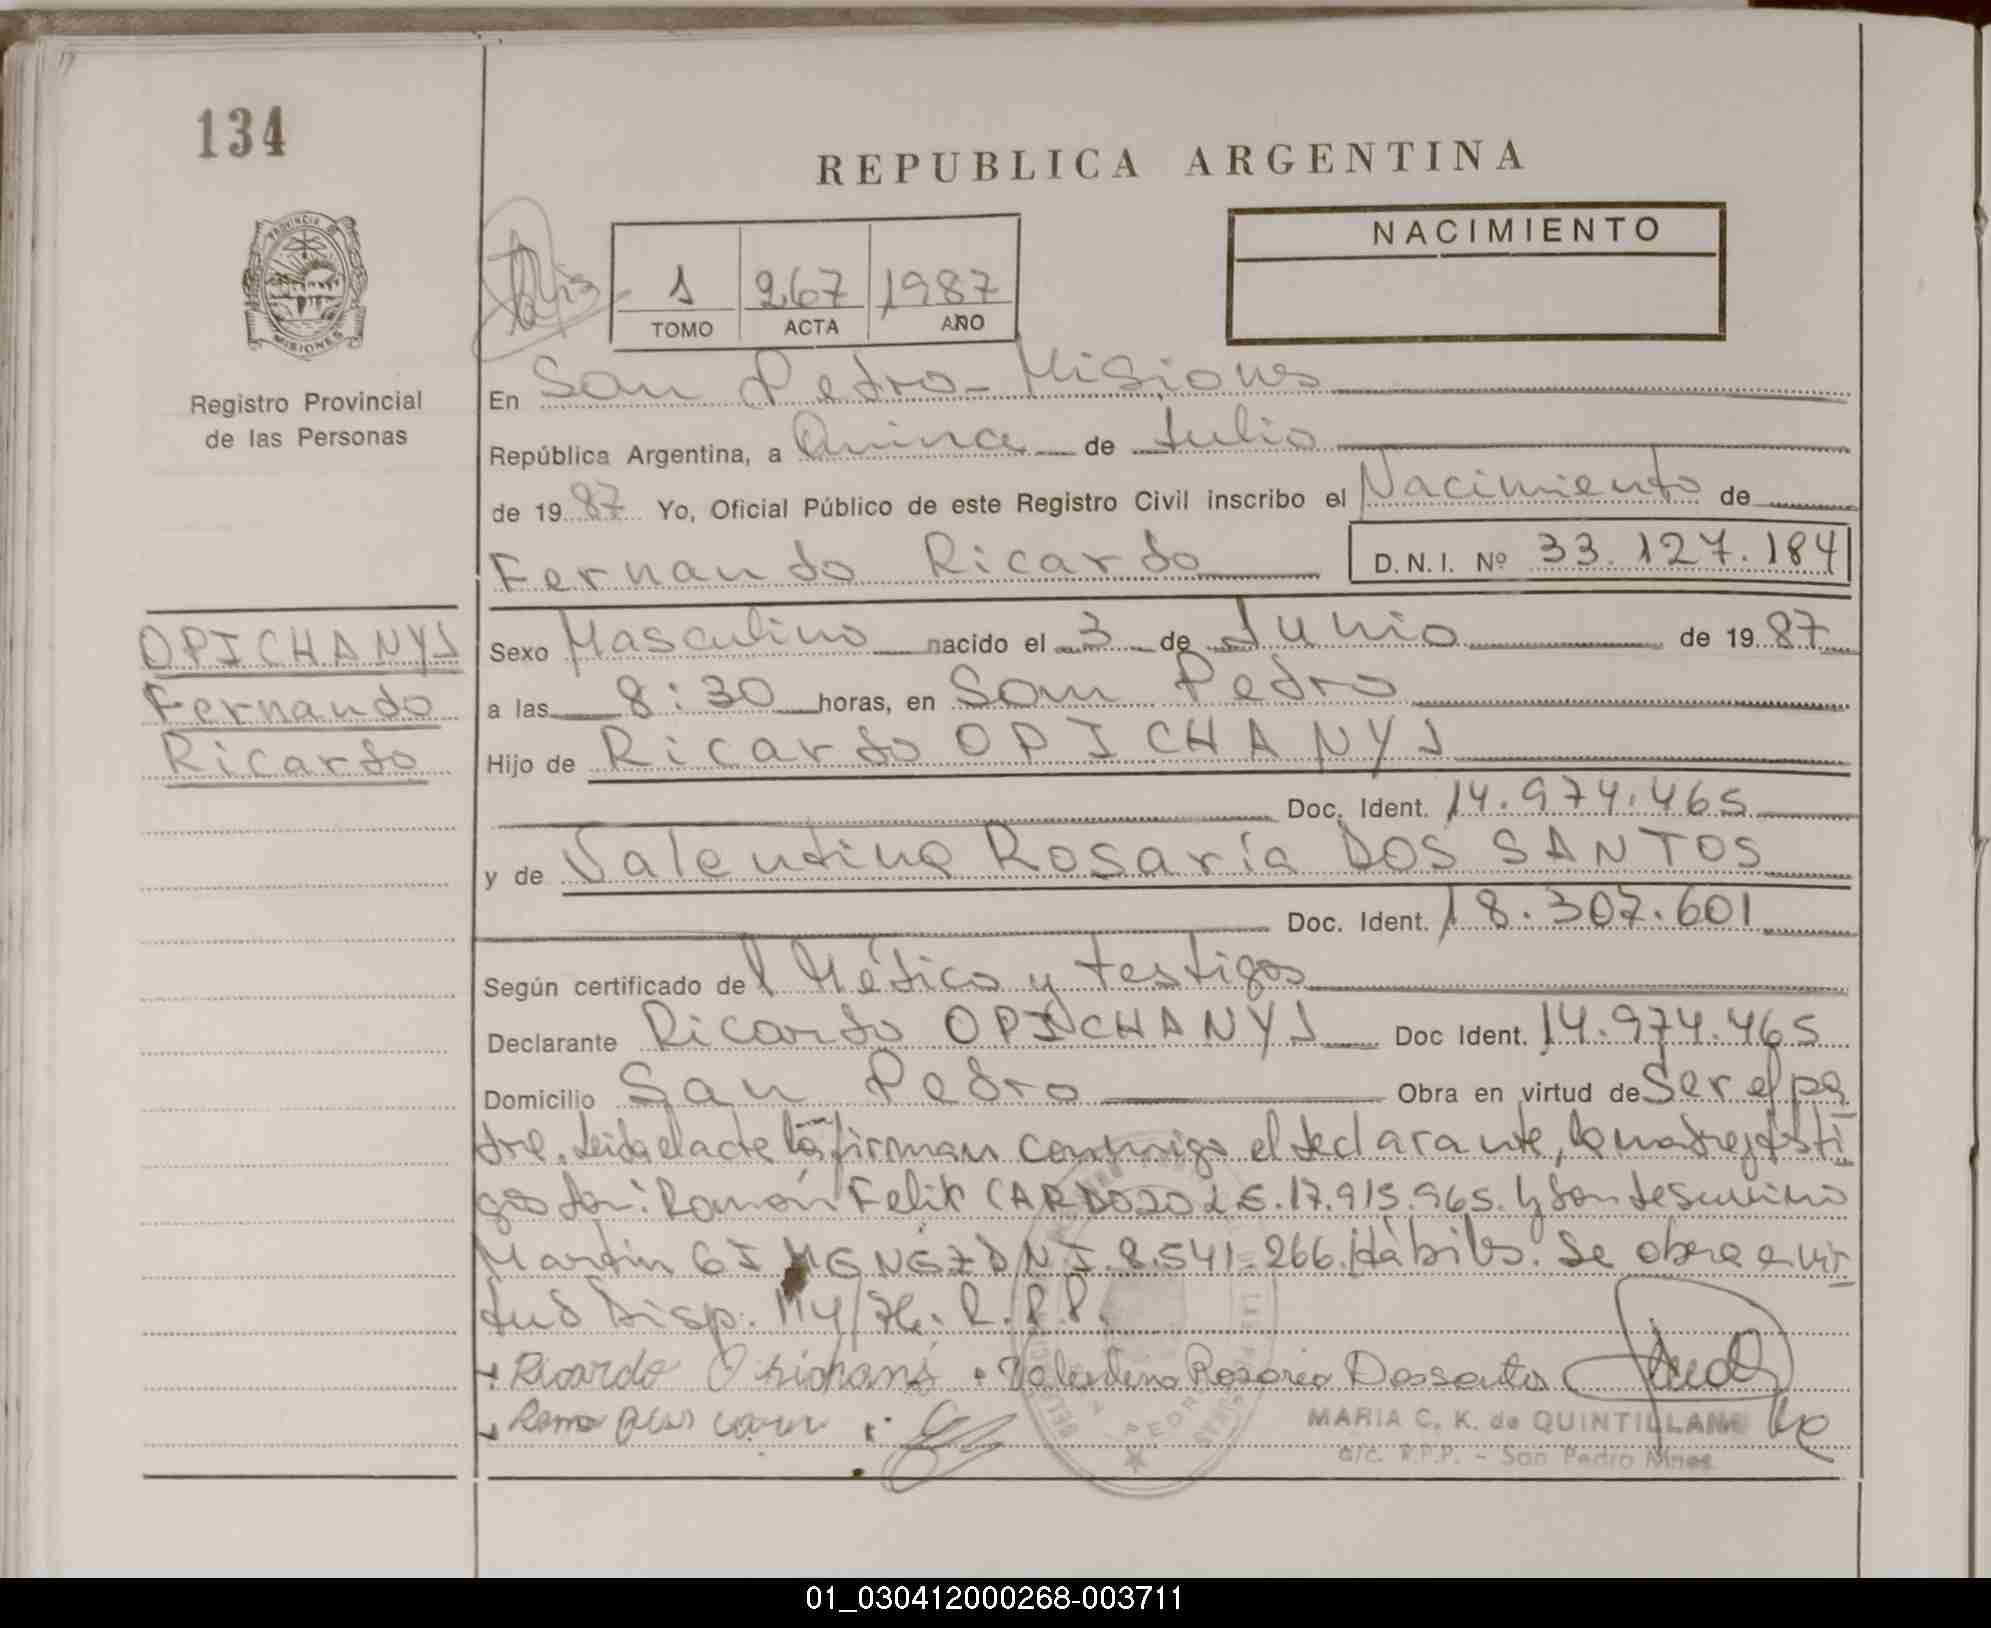 134
REPUBLICA ARGENTINA
PROVINCIA DE
MISIONES
Registro Provincial
de las Personas
NACIMIENTO
1 267 1987
TOMO ACTA AÑO
En San Pedro - Misiones
República Argentina, a Quince de Julio
de 1987 Yo, Oficial Público de este Registro Civil inscribo el Nacimiento de
Fernando Ricardo D.N.I. Nº 33.127.184
OPICHANYJ
Fernando
Ricardo
Sexo Masculino nacido el 3 de Junio de 1987
a las 8:30 horas, en San Pedro
Hijo de Ricardo OPICHANYJ
Doc. Ident. 14.974.465
y de Valentina Rosaria DOS SANTOS
Doc. Ident. 18.307.601
Según certificado del Médico y testigos
Declarante Ricardo OPICHANYJ Doc Ident. 14.974.465
Domicilio San Pedro Obra en virtud de Ser el pa
dre. Leida el acta la firman conmigo el declarante, la madre y testi
gos Ramón Felix CARDOZO 17.915.965. y
Martín GIMENEZ DNI. 8.541.266. Hábiles. Se obra e vir
tud Disp. 114/76. R.P.P.
Ricardo Opichanyj Valentina Rosaria Dossantos
MARIA C. K. de QUINTILLAN
a/c. R.P.P. - San Pedro Mnes.
01_030412000268-003711